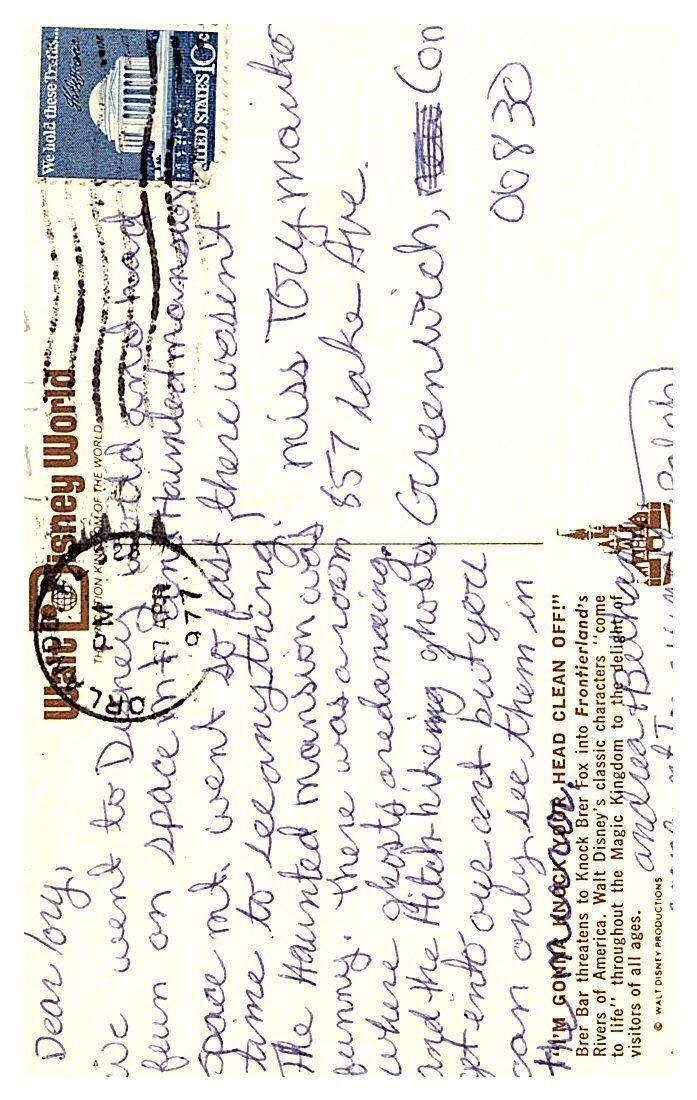 Walt Disney World
THE VACATION KINGDOM OF THE WORLD
We hold these Truths...
UNITED STATES 10c
ORL
PM
27 APR
1977
Dear Tory,
We went to Disney world and had
feun on space mt. and Haunted mansion
Space mt. went so fast there wasen't
time to see anything!
The Haunted mansion was
funny. There was a room
where ghosts are dancing
and the Hitch hikeing ghosts
get into our cart but you
can only see them in
the mirror.
andrea + Beth
miss Tory
857 Lake Ave.
Greenwich, Con
06830
"I'M GONNA KNOCK YOUR HEAD CLEAN OFF!"
Brer Bar threatens to Knock Brer Fox into Frontierland's
Rivers of America. Walt Disney's classic characters "come
to life" throughout the Magic Kingdom to the delight of
visitors of all ages.
© WALT DISNEY PRODUCTIONS